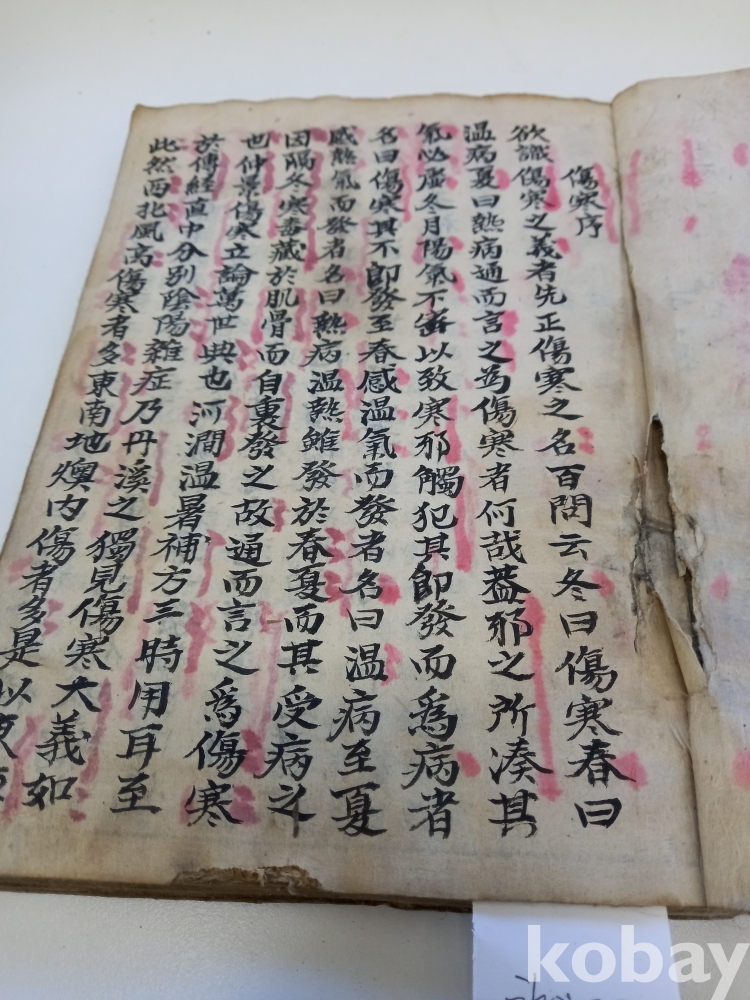 傷寒序
欲識傷寒之義者先正傷寒之名百問云冬曰傷寒春曰
温病夏曰熱病通而言之為傷寒者何哉蓋邪之所湊其
氣必虛冬月陽氣不密以致寒邪觸犯其即發而為病者
名曰傷寒其不即發至春感温氣而發者名曰温病至夏
感熱氣而發者名曰熱病温熱雖發於春夏而其受病之
因隔冬寒毒藏於肌骨而自裏發之故通而言之爲傷寒
也仲景傷寒立論萬世典也河澗温暑補方三時用耳至
於傳經直中分別陰陽雜症乃丹溪之獨見傷寒大義如
此然西北風高傷寒者多東南地燠内傷者多是以
kobay